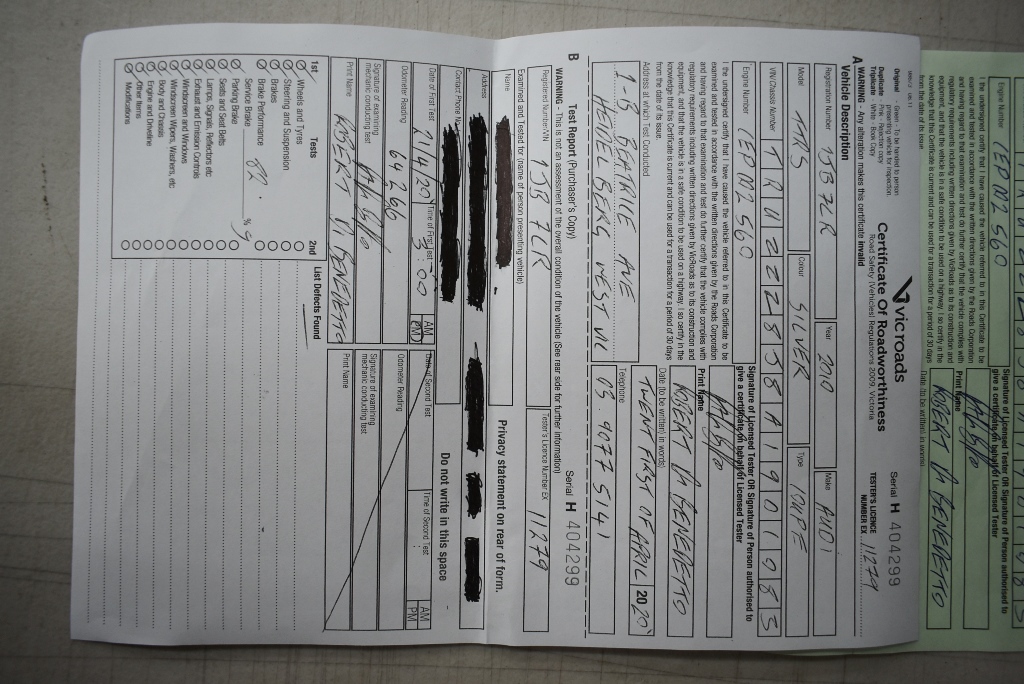 vicroads
Certificate Of Roadworthiness
Road Safety (Vehicles) Regulations 2009, Victoria
Serial H 404299
Original - Green - To be handed to person presenting vehicle for inspection.
Duplicate - Pink - Tester copy
Triplicate - White - Book Copy
TESTER'S LICENCE NUMBER EX 11279
A WARNING - Any alteration makes this certificate invalid
Vehicle Description
Registration Number 1JB 7LR
Year 2010
Make AUDI
Model TTRS
Colour SILVER
Type COUPE
VIN/Chassis Number
Engine Number
Signature of Licensed Tester OR Signature of Person authorised to give a certificate on behalf of Licensed Tester
I the undersigned certify that I have caused the vehicle referred to in this Certificate to be
examined and tested in accordance with the written directions given by the Roads Corporation
and having regard to that examination and test do further certify that the vehicle complies with
regulatory requirements including written directions given by VicRoads as to its construction and
equipment, and that the vehicle is in a safe condition to be used on a highway. I so certify in the
knowledge that this Certificate is current and can be used for a transaction for a period of 30 days
from the date of its issue.
Print Name ROBERT DI BENEDETTO
Date (to be written in words)
TWENT FIRST OF APRIL 20 20
Address at which Test Conducted
1-15 BEATRICE AVE
HEIDELBERG WEST VIC
Telephone
03. 9077 5141
B Test Report (Purchaser's Copy)
Serial H 404299
WARNING - This is not an assessment of the overall condition of the vehicle (See rear side for further information)
Registered Number/VIN 1JB 7LR
Tester's Licence Number EX 11279
Examined and Tested for (name of person presenting vehicle)
Name
Privacy statement on rear of form.
Address
Contact Phone No.
Do not write in this space
Date of First Test 21/4/20
Time of First Test 3:00 AM PM
Date of Second Test
Time of Second Test AM PM
Odometer Reading 64296
Odometer Reading
Signature of examining mechanic conducting test
Signature of examining mechanic conducting test
Print Name ROBERT DI BENEDETTO
Print Name
1st Tests 2nd List Defects Found
Wheels and Tyres
Steering and Suspension
Brakes
Brake Performance
Service Brake 82. % g
Parking Brake
Seats and Seat Belts
Lamps, Signals, Reflectors etc
Exhaust and Emission Controls
Windscreen and Windows
Windscreen Wipers, Washers, etc
Body and Chassis
Engine and Driveline
Other Items
Modifications